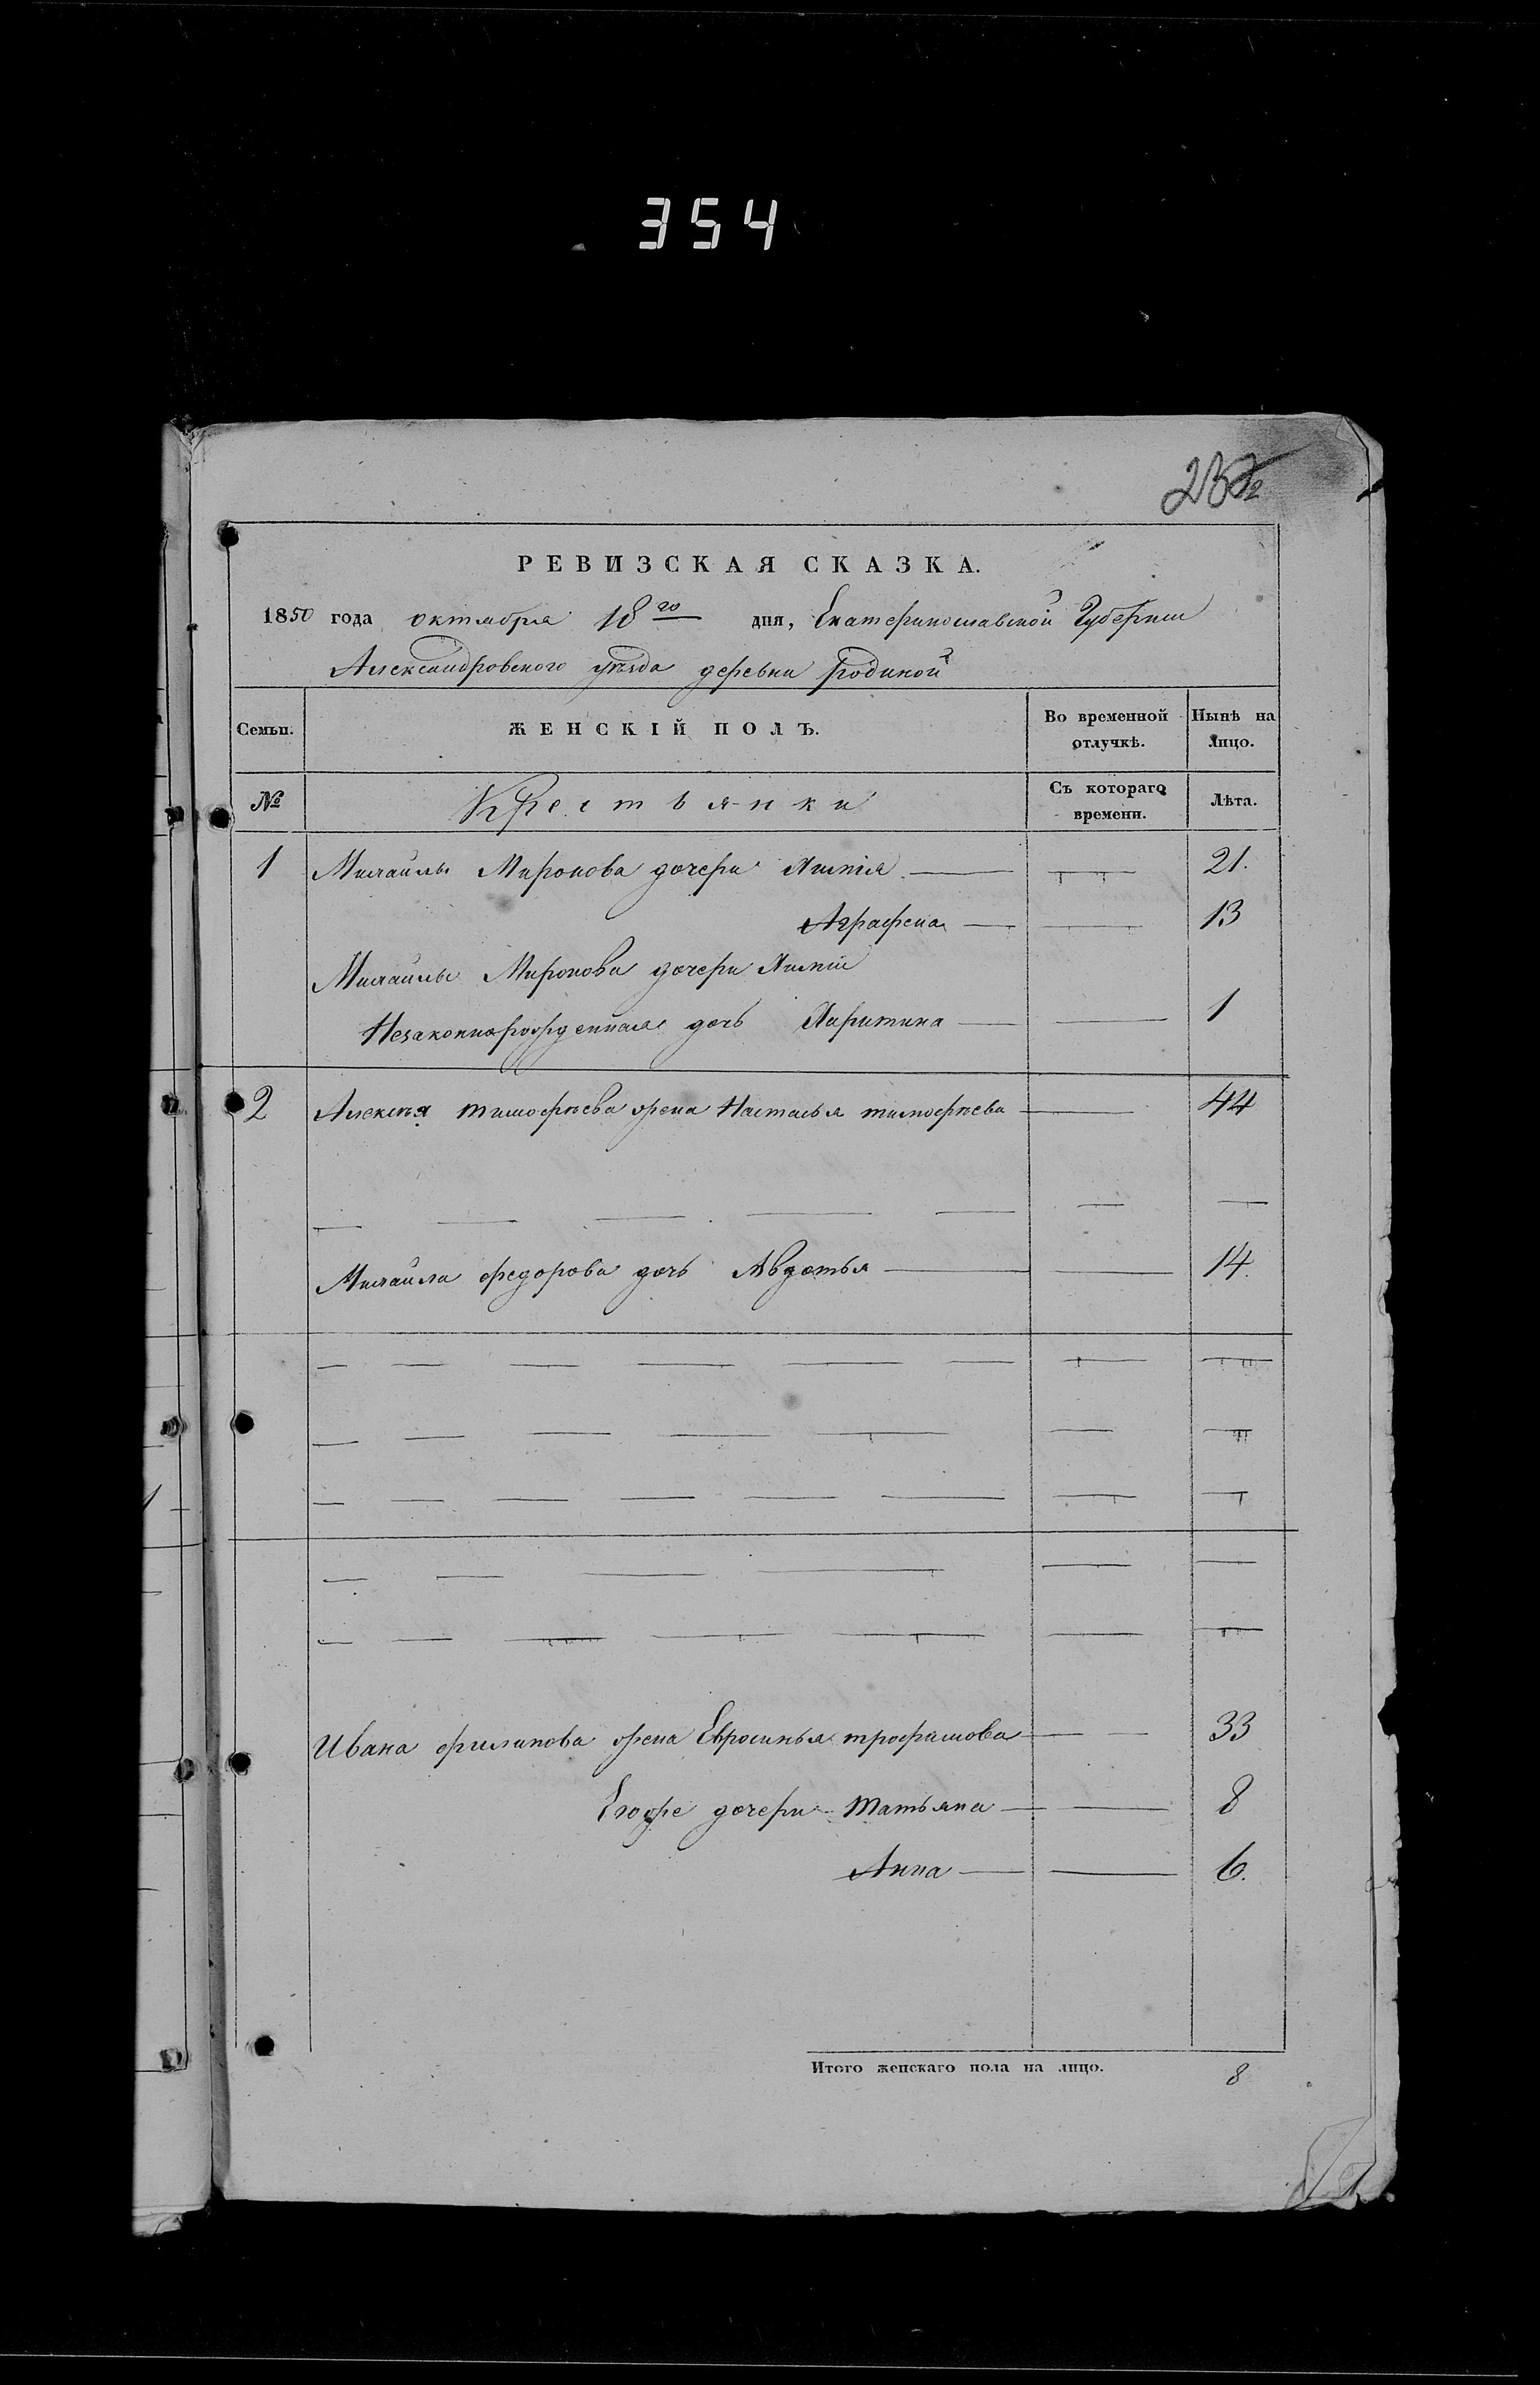 354
232
РЕВИЗСКАЯ СКАЗКА.
1850 года октября 18го дня, Екатеринославской Губернии
Александровского уѣзда деревни Родиной
Семьи.
ЖЕНСКІЙ ПОЛЪ.
Во временной отлучкѣ.
Нынѣ на лицо.
№
Крестьянки
Съ котораго времени.
Лѣта.
1 Михайлы Миронова дочери 21.
Аграфена 13
Михайлы Миронова дочери
Незаконнорожденная дочь Харитина 1
2 Алексѣя тимофѣева жена Наталья тимофѣева 44
Михайла федорова дочь Авдотья 14.
Ивана филипова жена Евросинья трофимова 33
Егоже дочери Татьяна 8
Анна 6.
Итого женскаго пола на лицо. 8